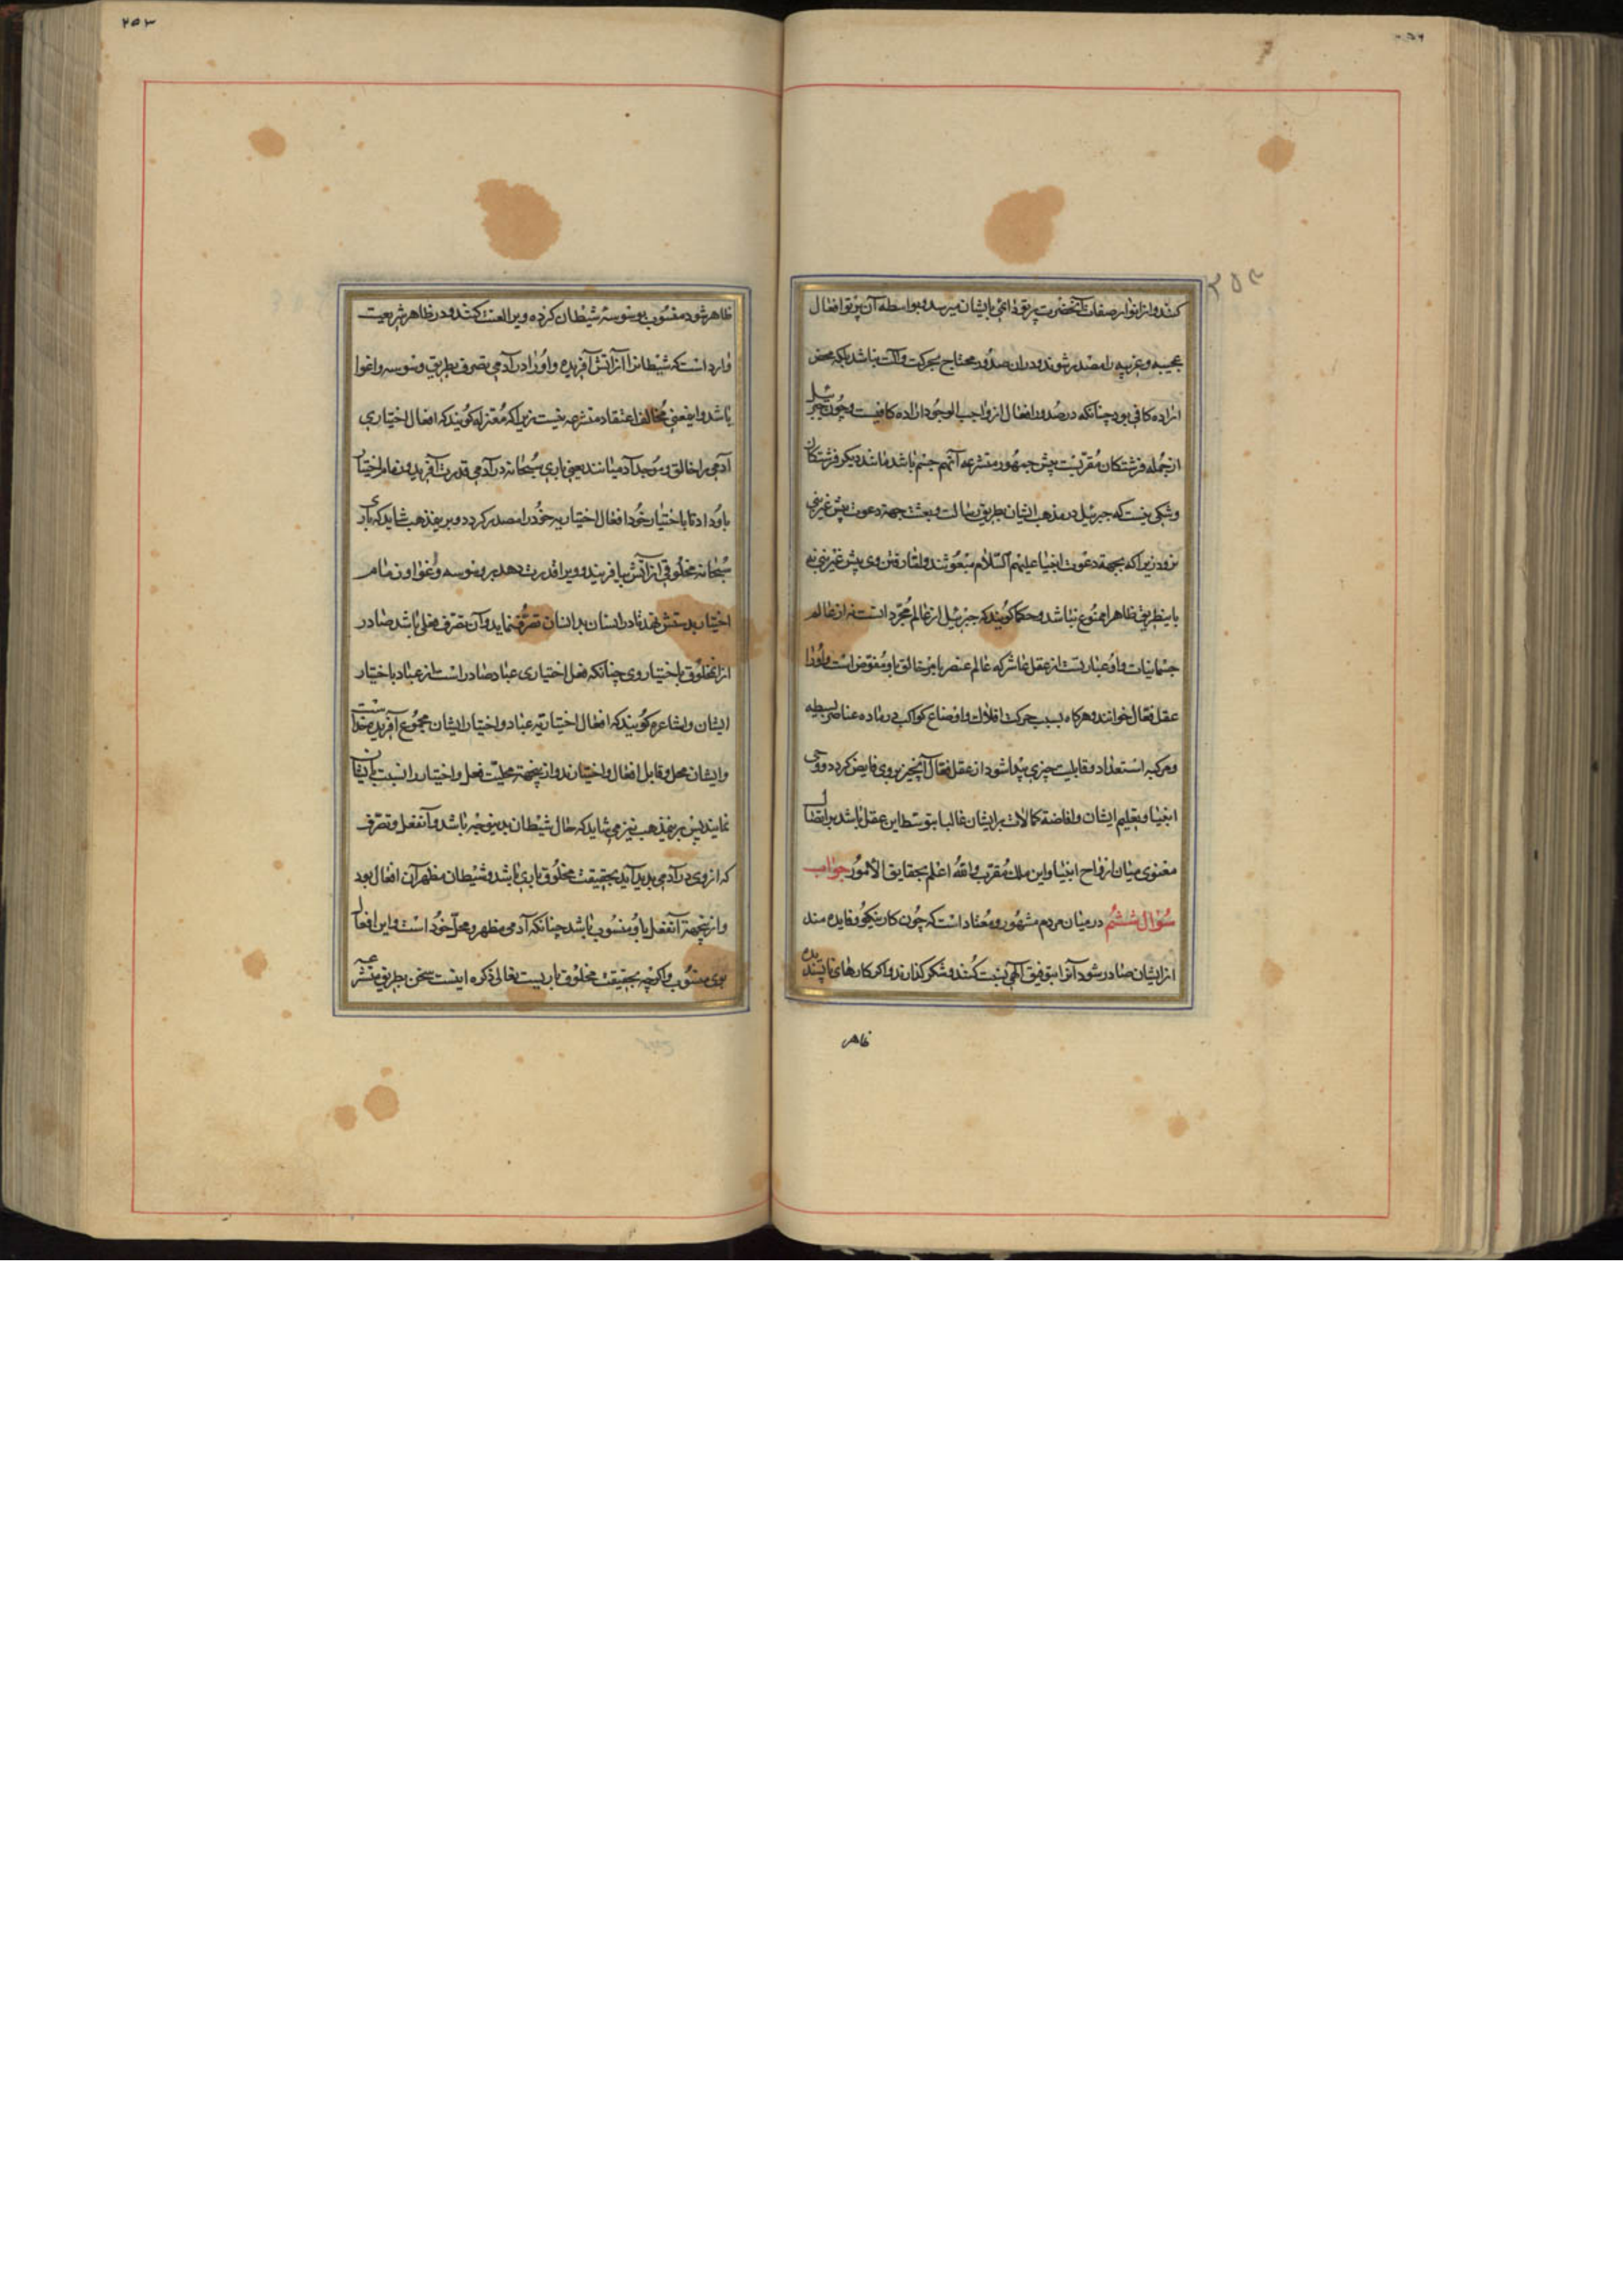 کنند و از انوار صفات آنحضرت پرتو ذاتی بایشان میرسد و بواسطه آن پرتو افعال
عجیبه و غریبه را مصدر شوند و در ان صدور محتاج بحرکت و آلت نباشد بلکه محض
اراده کافی بود چنانکه در صدور افعال از واجب الوجود اراده کافیست و چون جبرئیل
از جمله فرشتکان مقربست پیش جمهور متشرعه آنهم جسم باشد مانند دیکر فرشتکان
و شکی نیست که جبرئیل در مذهب ایشان بطریق رسالت و بعثت جهة دعوت پیش غیر نبی
نرود زیرا که بجهة دعوت انبیا علیهم السلام مبعوثند و اما رفتن وی پیش غیر نبی نه
باینطریق ظاهرا ممنوع نباشد و حکما کویند که جبرئیل از عالم مجرد اتست نه از عالم
جسمانیات و او عبارتست از عقل عاشر که عالم عنصر بامر خالق باو مفوض است و او را
عقل فعال خوانند و هرکاه بسبب حرکت افلاک و اوضاع کواکب در ماده عناصر بسیطه
و مرکبه استعداد و قابلیت چیزی پیدا شود از عقل فعال آنچیز بر وی فایض کردد و وحی
انبیا و تعلیم ایشان و افاضة کمالات بر ایشان غالبا بتوسط این عقل باشد بواسطه اتصال
معنوی میان ارواح انبیا و این ملک مقرب و الله اعلم بحقایق الامور جواب
سؤال ششم در میان مردم مشهور و معتاد است که چون کار نیکو و فایده مند
از ایشان صادر شود آنرا بتوفیق الهی نسبت کنند و شکر کذارند و اکر کارهای ناپسندیده
ظاهر
۲۵۳
ظاهر شود منسوب بوسوسه شیطان کرده ویرا لعنت کنند و در ظاهر شریعت
وارد است که شیطانرا از آتش آفریده و او را در آدمی تصرف بطریق وسوسه و اغوا
باشد و اینمعنی مخالف اعتقاد متشرعه نیست زیرا که معتزله کویند که افعال اختیاری
آدمی را خالق و موجد آدمیانند یعنی باری سبحانه در آدمی قدرت آفریده و زمام اختیار
باو داد تا باختیار خود افعال اختیاریه خود را مصدر کردد و برین مذهب شاید که باری
سبحانه مخلوقی از آتش بیافریند و ویرا قدرت دهد بر وسوسه و اغوا و زمام
اختیار بدستش نهد تا در انسان بدانسان تصرف نماید و آن تصرف فعلی باشد صادر
از آنمخلوق باختیار وی چنانکه فعل اختیاری عباد صادر است از عباد باختیار
ایشان و اشاعره کویند که افعال اختیاریه عباد و اختیار ایشان مجموع آفریده خداست
و ایشان محل و قابل افعال و اختیارند و ازینجهة محلیت فعل و اختیار را نسبت بایشان
نمایند پس برین مذهب نیز می شاید که حال شیطان بدینوجه باشد و آنفعل و تصرف
که از وی در آدمی پدید آید بحقیقت مخلوق باری باشد و شیطان مظهر آن افعال بود
و ازینجهة آنفعل باو منسوب باشد چنانکه آدمی مظهر و محل خود است و این افعال
بوی منسوب و اکرچه بحقیقت مخلوق باریست تعالی ذکره اینست سخن بطریق متشرعه